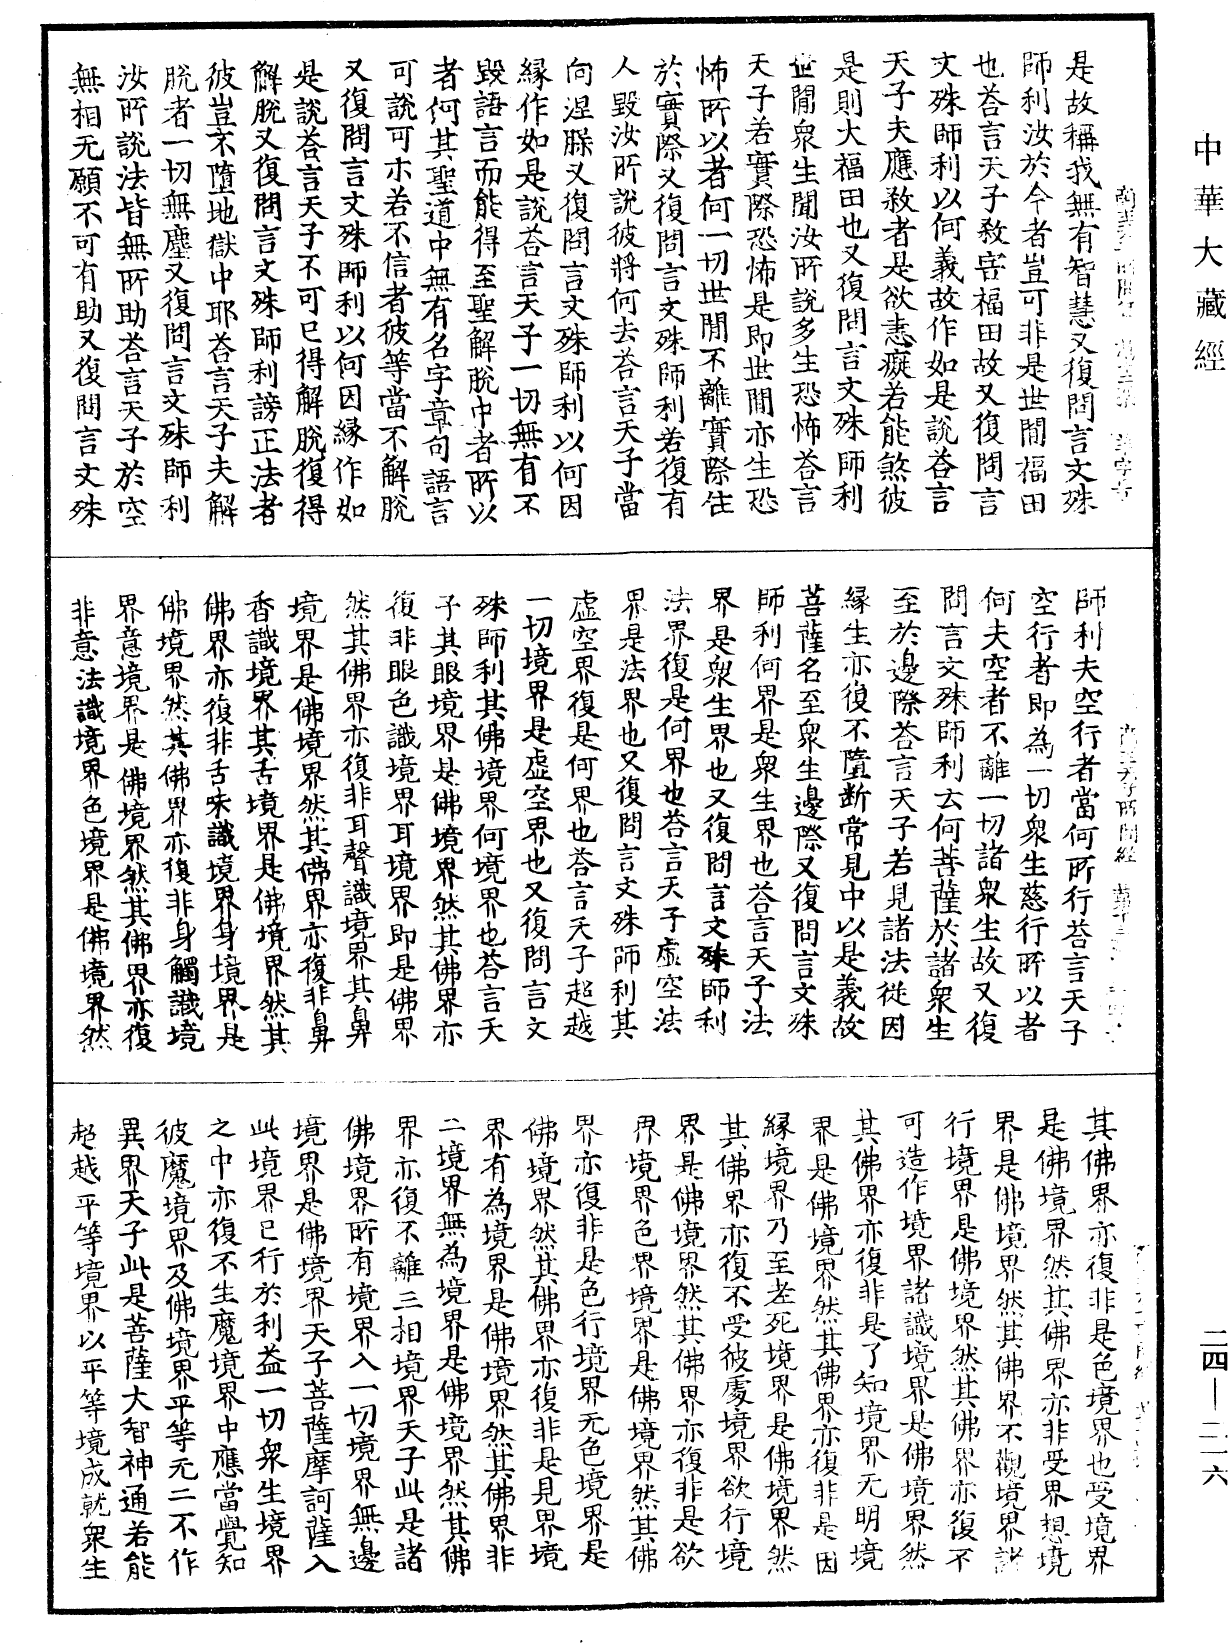 中華大藏經
是故稱我無有智慧又復問言文殊
師利汝於今者豈可非是世間福田
也荅言天子敎害福田故又復問言
文殊師利以何義故作如是說荅言
天子夫應敎者是欲恚癡若能煞彼
是則大福田也又復問言文殊師利
世間衆生聞汝所說多生恐怖荅言
天子若實際恐怖是即世間亦生恐
怖所以者何一切世間不離實際住
於實際又復問言文殊師利若復有
人毀汝所說彼將何去荅言天子當
向涅槃又復問言文殊師利以何因
緣作如是說荅言天子一切無有不
毀語言而能得至聖解脫中者所以
者何其聖道中無有名字章句語言
可說可示若不信者彼等當不解脫
又復問言文殊師利以何因緣作如
是說荅言天子不可已得解脫復得
解脫又復問言文殊師利謗正法者
彼豈不墮地獄中耶荅言天子夫解
脫者一切無塵又復問言文殊師利
汝所說法皆無所助荅言天子於空
無相无願不可有助又復問言文殊
師利夫空行者當何所行荅言天子
空行者即為一切衆生慈行所以者
何夫空者不離一切諸衆生故又復
問言文殊師利云何菩薩於諸衆生
至於邊際荅言天子若見諸法從因
緣生亦復不墮斷常見中以是義故
菩薩名至衆生邊際又復問言文殊
師利何界是衆生界也荅言天子法
界是衆生界也又復問言文殊師利
法界復是何界也荅言天子虛空法
界是法界也又復問言文殊師利其
虛空界復是何界也荅言天子超越
一切境界是虛空界也又復問言文
殊師利其佛境界何境界也荅言天
子其眼境界是佛境界然其佛界亦
復非眼色識境界耳境界即是佛界
然其佛界亦復非耳聲識境界其鼻
境界是佛境界然其佛界亦復非鼻
香識境界其舌境界是佛境界然其
佛界亦復非舌味識境界身境界是
佛境界然其佛界亦復非身觸識境
界意境界是佛境界然其佛界亦復
非意法識境界色境界是佛境界然
其佛界亦復非是色境界也受境界
是佛境界然其佛界亦非受界想境
界是佛境界然其佛界不觀境界諸
行境界是佛境界然其佛界亦復不
可造作境界諸識境界是佛境界然
其佛界亦復非是了知境界无明境
界是佛境界然其佛界亦復非是因
緣境界乃至老死境界是佛境界然
其佛界亦復不受彼處境界欲行境
界是佛境界然其佛界亦復非是欲
界境界色界境界是佛境界然其佛
界亦復非是色行境界无色境界是
佛境界然其佛界亦復非是見界境
界有為境界是佛境界然其佛界非
二境界無為境界是佛境界然其佛
界亦復不離三相境界天子此是諸
佛境界所有境界入一切境界無邊
境界是佛境界天子菩薩摩訶薩入
此境界已行於利益一切衆生境界
之中亦復不生魔境界中應當覺知
彼魔境界及佛境界平等无二不作
異界天子此是菩薩大智神通若能
超越平等境界以平等境成就衆生
二四—二一六